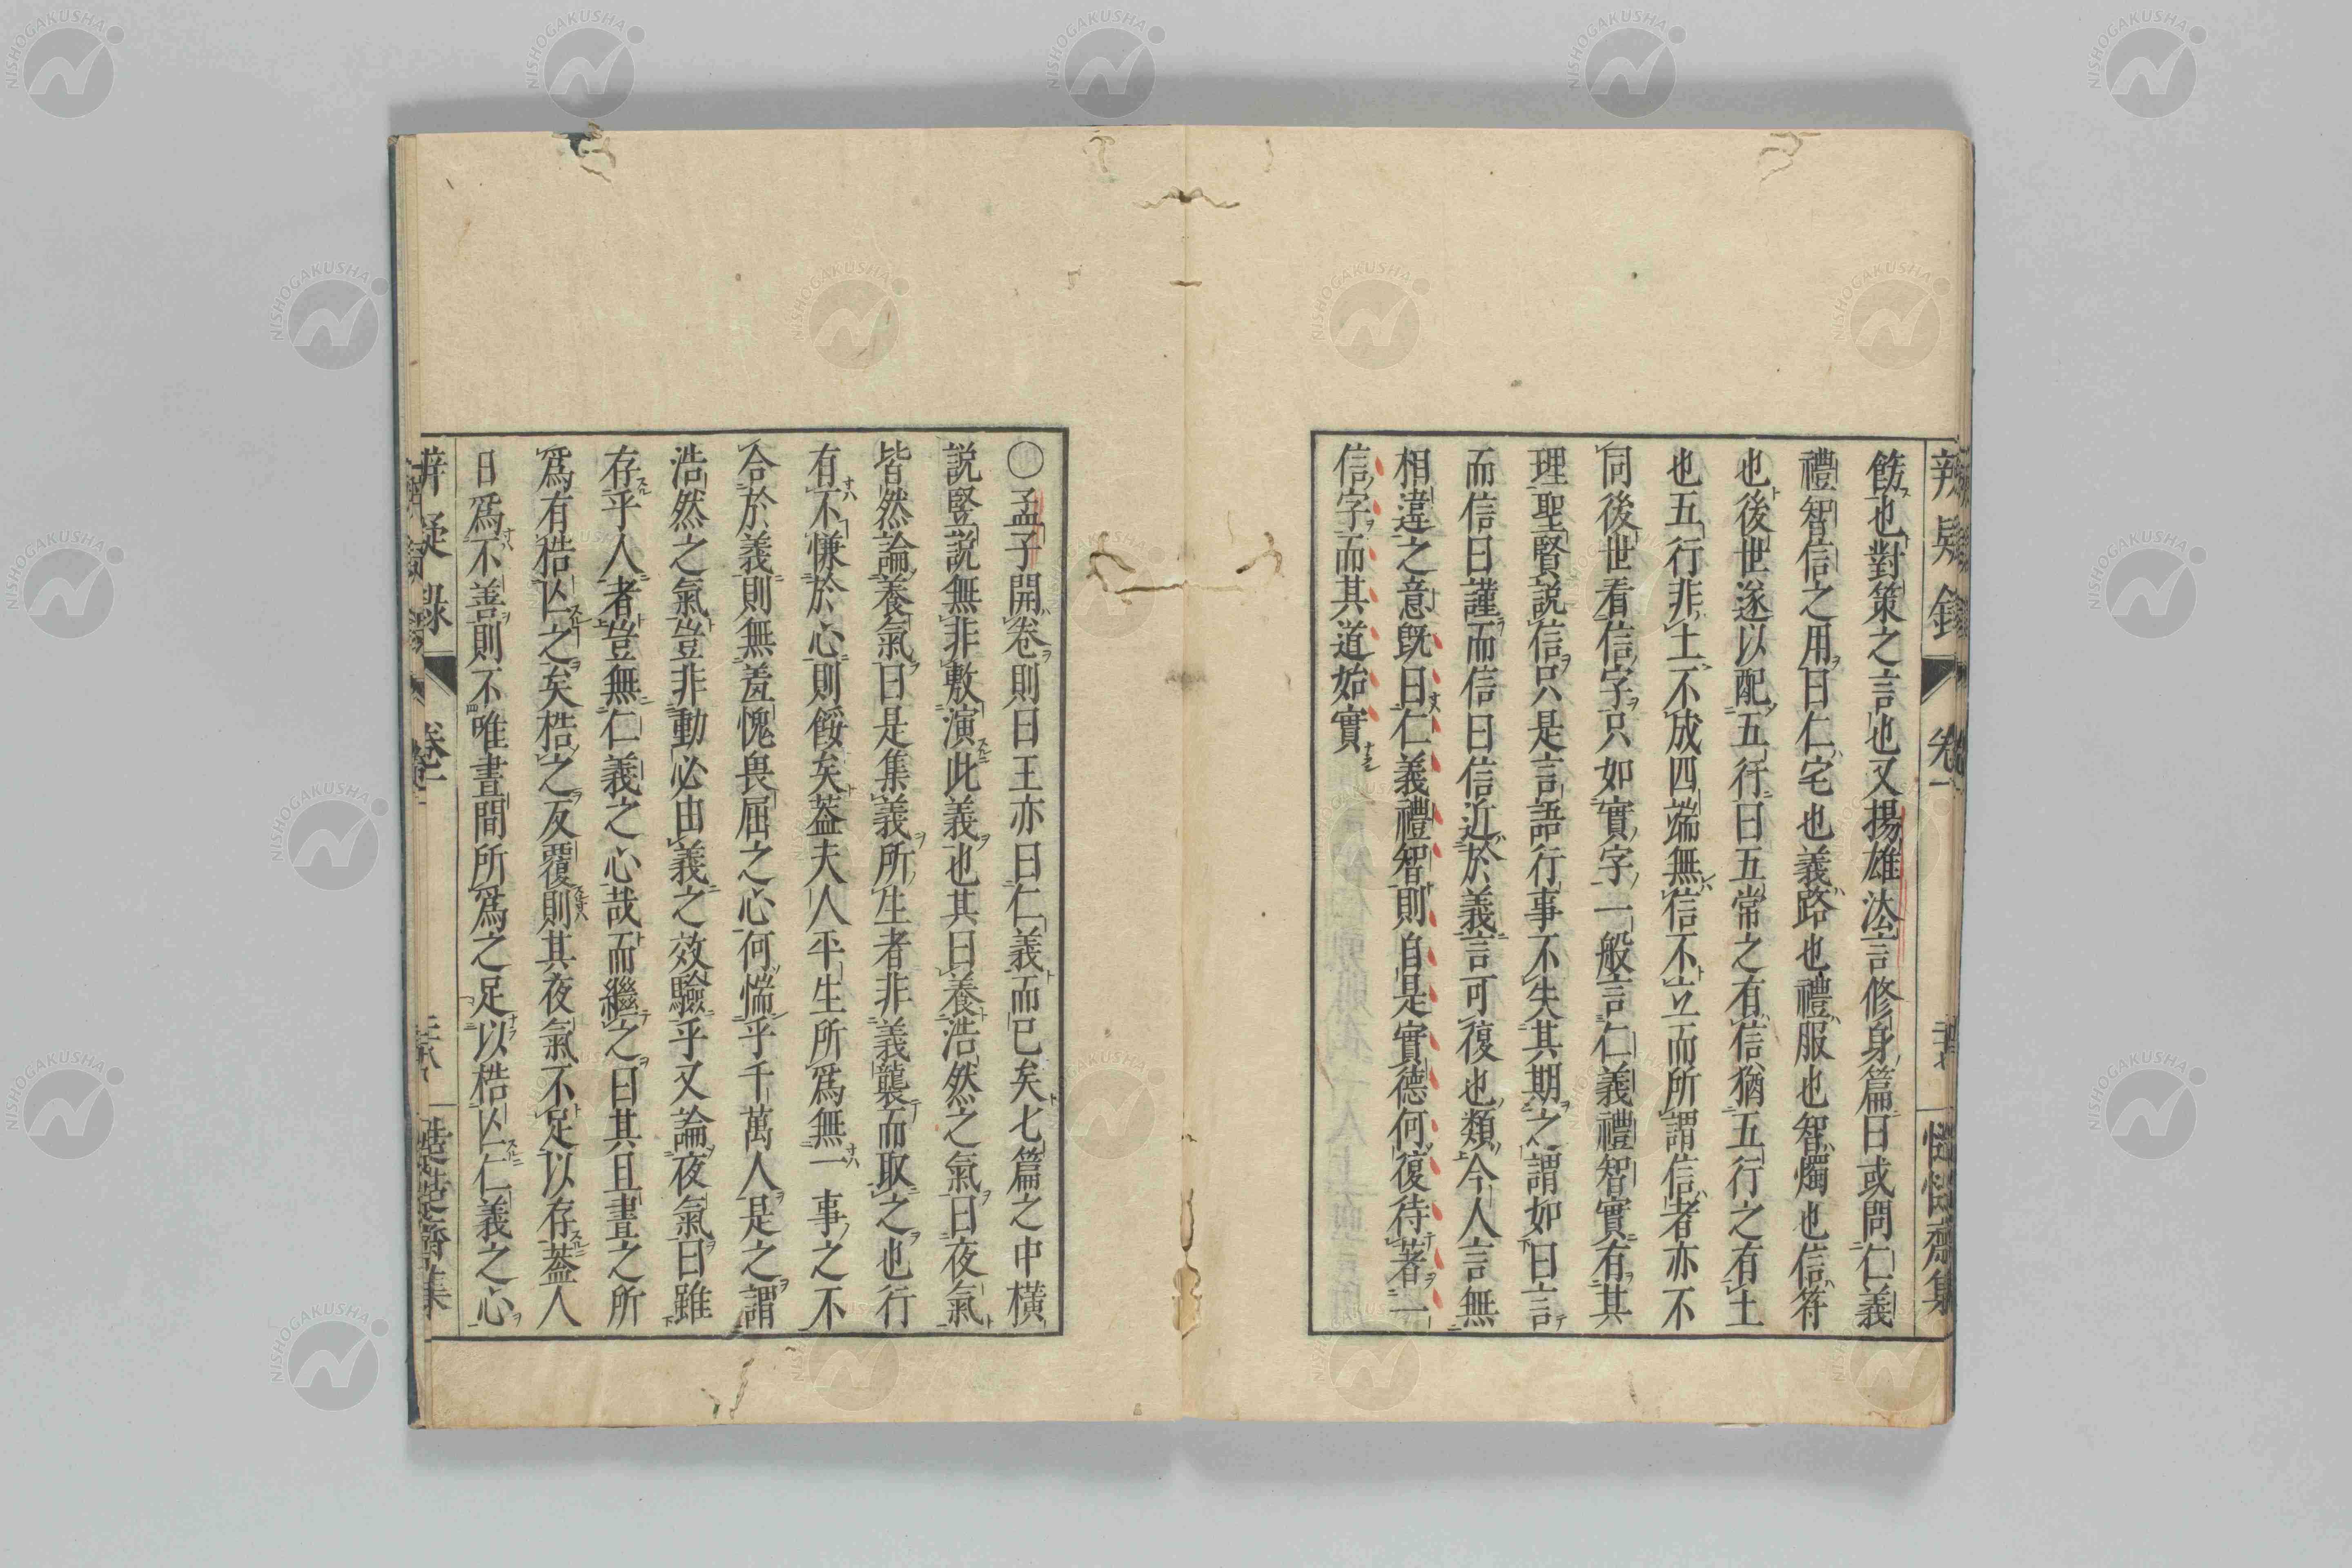 飭也對策之言也又揚雄法言修身篇曰或問仁義
禮智信之用曰仁宅也義路也禮服也智燭也信符
也後世遂以配五行曰五常之有信猶五行之有土
也五行非土不成四端無信不立而所謂信者亦不
同後世看信字只如實字一般言仁義禮智實有其
理聖賢説信只是言語行事不失其期之謂如曰言
而信曰謹而信曰信近於義言可復也類今人言無
相違之意既曰仁義禮智則自是實德何復待著一
信字而其道始實
〇孟子開卷則曰王亦曰仁義而已矣七篇之中橫
説竪説無非敷演此義也其曰養浩然之氣曰夜氣
皆然論養氣曰是集義所生者非義襲而取之也行
有不慊於心則餒矣葢夫人平生所爲無一事之不
合於義則無羞愧畏屈之心何惴乎千萬人是之謂
浩然之氣豈非動必由義之效驗乎又論夜氣曰雖
存乎人者豈無仁義之心哉而繼之曰其旦晝之所
爲有梏亾之矣梏之反覆則其夜氣不足以存葢人
日爲不善則不唯晝間所爲之足以梏亾仁義之心
辨疑錄
卷二
NISHOGAKUSHA